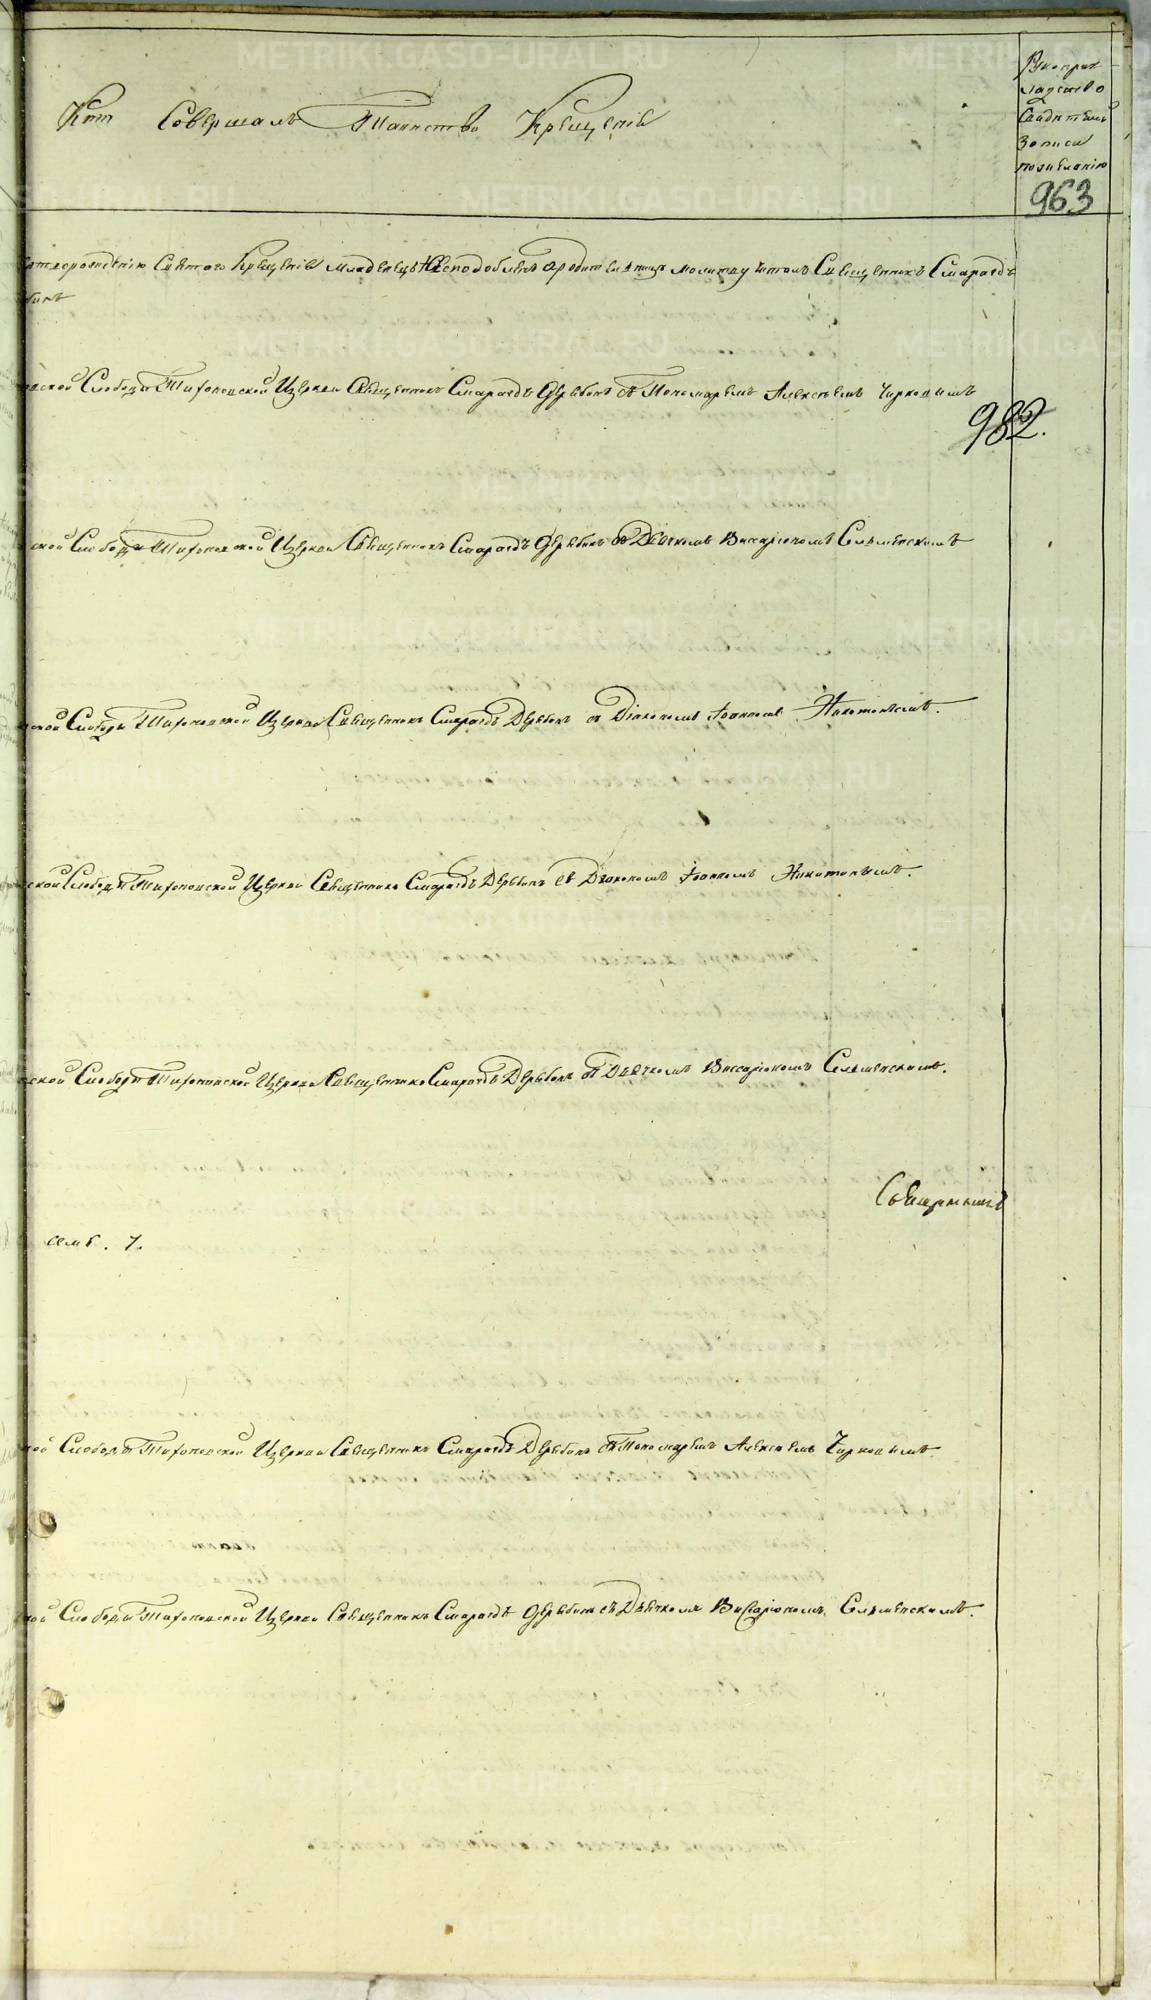 Кто Совершалъ Таинство Крещенія
Рукоприк
ладство
Свидетелей
Записи
пожеланію
963
Святаго Крещенія младенецъ Неподобленъ Родительницѣ молитву читалъ Священникъ Смарагдъ
ской Слободы Тихоновской Церкви Священникъ Смарагдъ Дерябинъ съ Пономаремъ Алексѣемъ Чирковымъ
982.
ской Слободы Тихоновской Церкви Священникъ Смарагдъ Дерябинъ съ Дьячкомъ Виссаріономъ Селменскимъ
ской Слободы Тихоновской Церкви Священникъ Смарагдъ Дерябинъ съ Діакономъ Іоанномъ Никитинымъ.
ской Слободы Тихоновской Церкви Священникъ Смарагдъ Дерябинъ съ Діакономъ Іоанномъ Никитинымъ.
ской Слободы Тихоновской Церкви Священникъ Смарагдъ Дерябинъ съ Дьячкомъ Виссаріономъ Селменскимъ.
семь. 7.
ой Слободы Тихоновской Церкви Священникъ Смарагдъ Дерябинъ съ Пономаремъ Алексѣемъ Чирковымъ.
ой Слободы Тихоновской Церкви Священникъ Смарагдъ Дерябинъ съ Дьячкомъ Висаріономъ Селменскимъ.
METRIKI.GASO-URAL.RU